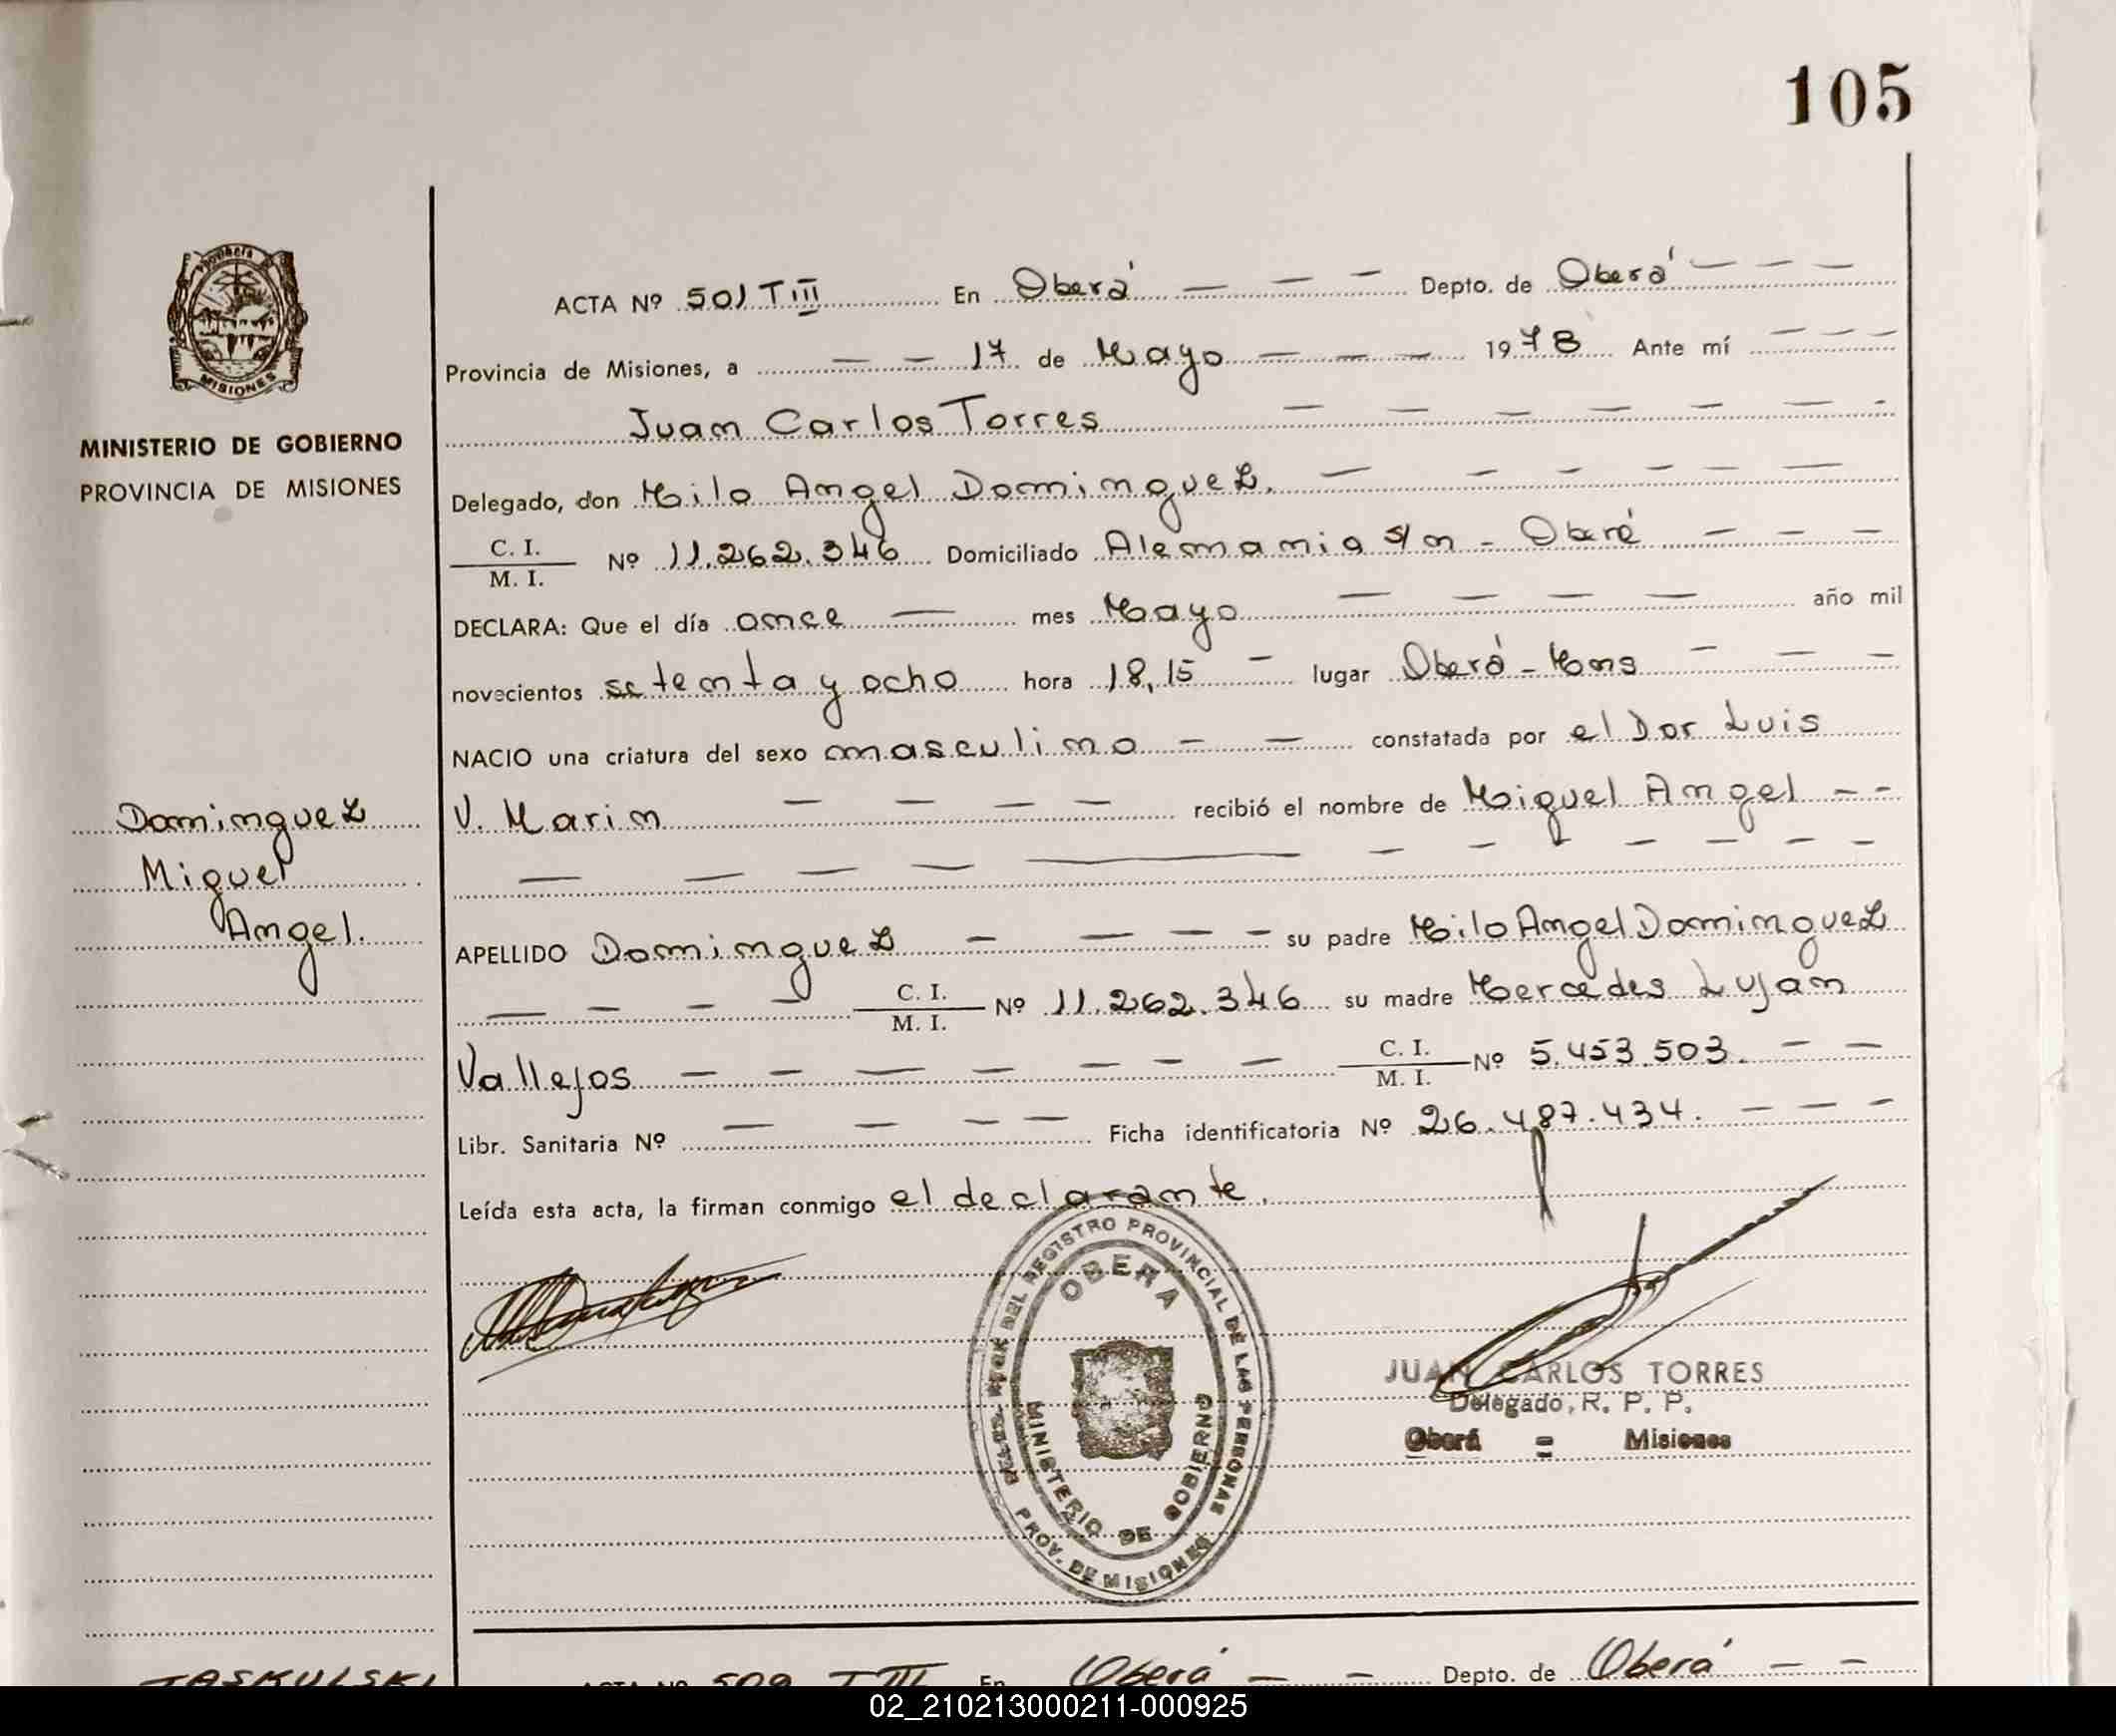 105
Provincia de
MISIONES
MINISTERIO DE GOBIERNO
PROVINCIA DE MISIONES
ACTA Nº 501 T III En Oberá — — — Depto. de Oberá — — —
Provincia de Misiones, a — — 17 de Mayo — — — 1978 Ante mí — — —
Juan Carlos Torres — — — — — — -
Delegado, don Milo Angel Dominguez. — — — — — —
C. I.
M. I. Nº 11.262.346 Domiciliado Alemania s/n - Oberá — — —
DECLARA: Que el día once — mes Mayo — — — — año mil
novecientos setenta y ocho hora 18,15 — lugar Oberá - Mnes — — —
NACIO una criatura del sexo masculino — — constatada por el Dor Luis
V. Marin — — — — recibió el nombre de Miguel Angel - -
Dominguez
Miguel
Angel.
APELLIDO Dominguez — — — — su padre Milo Angel Dominguez
— — — — C. I.
M. I. Nº 11.262.346 su madre Mercedes Lujan
Vallejos — — — — — — — C. I.
M. I. Nº 5.453.503. — —
Libr. Sanitaria Nº — — — — Ficha identificatoria Nº 26.487.434. — — —
Leída esta acta, la firman conmigo el declarante.
DEL REGISTRO PROVINCIAL DE LAS PERSONAS
PROV. DE MISIONES
OBERA
MINISTERIO DE GOBIERNO
JUAN CARLOS TORRES
Delegado, R. P. P.
Oberá = Misiones
JASKULSKI
ACTA Nº 502 T III En Oberá — — Depto. de Oberá — —
02_210213000211-000925